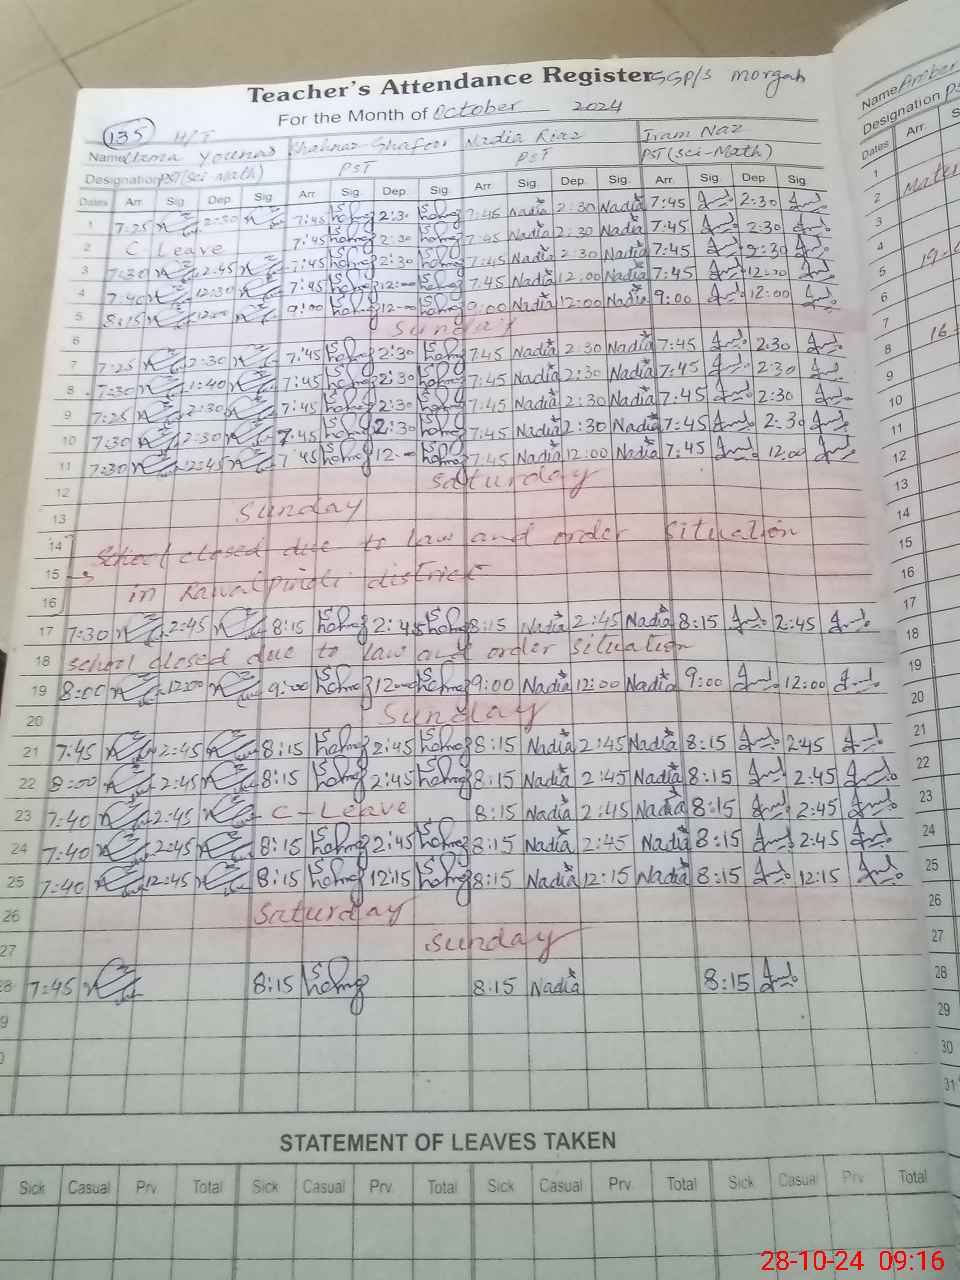 Teacher's Attendance Register GGP/S morgah
For the Month of October 2024
135 H/T
Name Uzma Younas Shahnaz Ghafoor Nadia Riaz Iram Naz
Designation PST (sci-math) PST PST PST (sci-Math)
Dates Arr. Sig. Dep. Sig. Arr. Sig. Dep. Sig. Arr. Sig. Dep. Sig. Arr. Sig. Dep. Sig.
1 7:25 2:30 7:45 2:30 7:45 Nadia 2:30 Nadia 7:45 2:30
2 C Leave 7:45 2:30 7:45 Nadia 2:30 Nadia 7:45 2:30
3 7:30 2:45 7:45 2:30 7:45 Nadia 2:30 Nadia 7:45 2:30
4 7:40 12:30 7:45 12:00 7:45 Nadia 12:00 Nadia 7:45 12:00
5 8:15 12:00 9:00 12:00 9:00 Nadia 12:00 Nadia 9:00 12:00
6 Sunday
7 7:25 2:30 7:45 2:30 7:45 Nadia 2:30 Nadia 7:45 2:30
8 7:30 1:40 7:45 2:30 7:45 Nadia 2:30 Nadia 7:45 2:30
9 7:25 2:30 7:45 2:30 7:45 Nadia 2:30 Nadia 7:45 2:30
10 7:30 2:30 7:45 2:30 7:45 Nadia 2:30 Nadia 7:45 2:30
11 7:30 2:45 7:45 12:00 7:45 Nadia 12:00 Nadia 7:45 12:00
12 Saturday
13 Sunday
14 School closed due to law and order situation
15
16 in Rawalpindi district
17 7:30 2:45 8:15 2:45 8:15 Nadia 2:45 Nadia 8:15 2:45
18 school closed due to law and order situation
19 8:00 12:00 9:00 12:00 9:00 Nadia 12:00 Nadia 9:00 12:00
20 Sunday
21 7:45 2:45 8:15 2:45 8:15 Nadia 2:45 Nadia 8:15 2:45
22 8:00 2:45 8:15 2:45 8:15 Nadia 2:45 Nadia 8:15 2:45
23 7:40 2:45 C-Leave 8:15 Nadia 2:45 Nadia 8:15 2:45
24 7:40 2:45 8:15 2:45 8:15 Nadia 2:45 Nadia 8:15 2:45
25 7:40 12:45 8:15 12:15 8:15 Nadia 12:15 Nadia 8:15 12:15
26 Saturday
27 Sunday
28 7:45 8:15 8:15 Nadia 8:15
STATEMENT OF LEAVES TAKEN
Sick Casual Prv. Total Sick Casual Prv. Total Sick Casual Prv. Total Sick Casual Prv Total
Name Amber
Designation PS
Dates Arr. S
1
2 Mater
3
4
5 19-
6
7
8 16
9
10
11
12
13
14
15
16
17
18
19
20
21
22
23
24
25
26
27
28
29
30
31
28-10-24 09:16